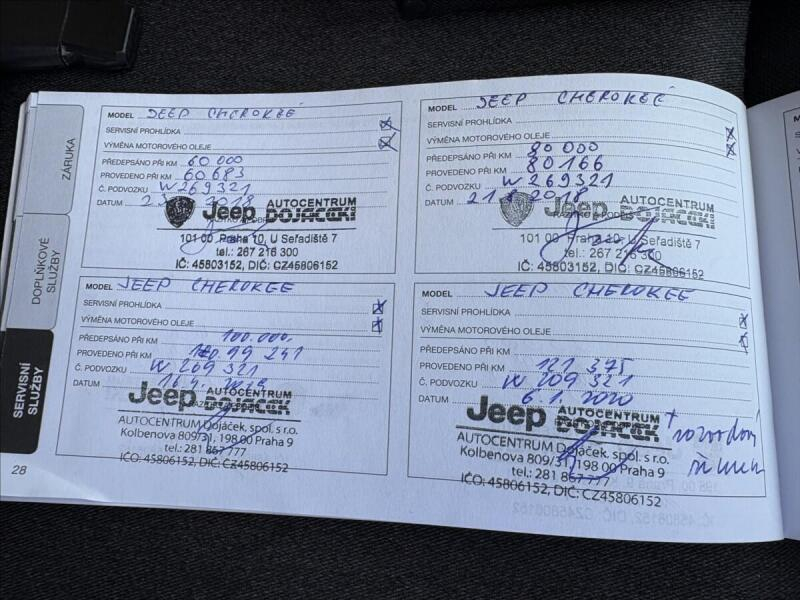 ZÁRUKA
DOPLŇKOVÉ
SLUŽBY
SERVISNÍ
SLUŽBY
28
MODEL JEEP CHEROKEE
SERVISNÍ PROHLÍDKA
VÝMĚNA MOTOROVÉHO OLEJE
PŘEDEPSÁNO PŘI KM 60 000
PROVEDENO PŘI KM 60 683
Č. PODVOZKU W 269321
DATUM 2018
Jeep AUTOCENTRUM
DOJÁČEK
101 00 Praha 10, U Seřadiště 7
tel.: 267 216 300
IČ: 45803152, DIČ: CZ45806152
MODEL JEEP CHEROKEE
SERVISNÍ PROHLÍDKA
VÝMĚNA MOTOROVÉHO OLEJE
PŘEDEPSÁNO PŘI KM 80 000
PROVEDENO PŘI KM 80 166
Č. PODVOZKU W 269321
DATUM 21 8 2018
Jeep AUTOCENTRUM
DOJÁČEK
101 00 Praha 10, U Seřadiště 7
tel.: 267 216 300
IČ: 45803152, DIČ: CZ45806152
MODEL JEEP CHEROKEE
SERVISNÍ PROHLÍDKA
VÝMĚNA MOTOROVÉHO OLEJE
PŘEDEPSÁNO PŘI KM 100.000,
PROVEDENO PŘI KM 99 241
Č. PODVOZKU W 269 321
DATUM 16.4. 2019
Jeep AUTOCENTRUM
DOJÁČEK
AUTOCENTRUM Dojáček, spol. s r.o.
Kolbenova 809/31, 198 00 Praha 9
tel.: 281 867 777
IČO: 45806152, DIČ: CZ45806152
MODEL JEEP CHEROKEE
SERVISNÍ PROHLÍDKA
VÝMĚNA MOTOROVÉHO OLEJE
PŘEDEPSÁNO PŘI KM
PROVEDENO PŘI KM 121 375
Č. PODVOZKU W 209 321
DATUM 6.1. 2020
Jeep AUTOCENTRUM
DOJÁČEK
AUTOCENTRUM Dojáček, spol. s r.o.
Kolbenova 809/31, 198 00 Praha 9
tel.: 281 867 777
IČO: 45806152, DIČ: CZ45806152
+ rozvodový
řemen